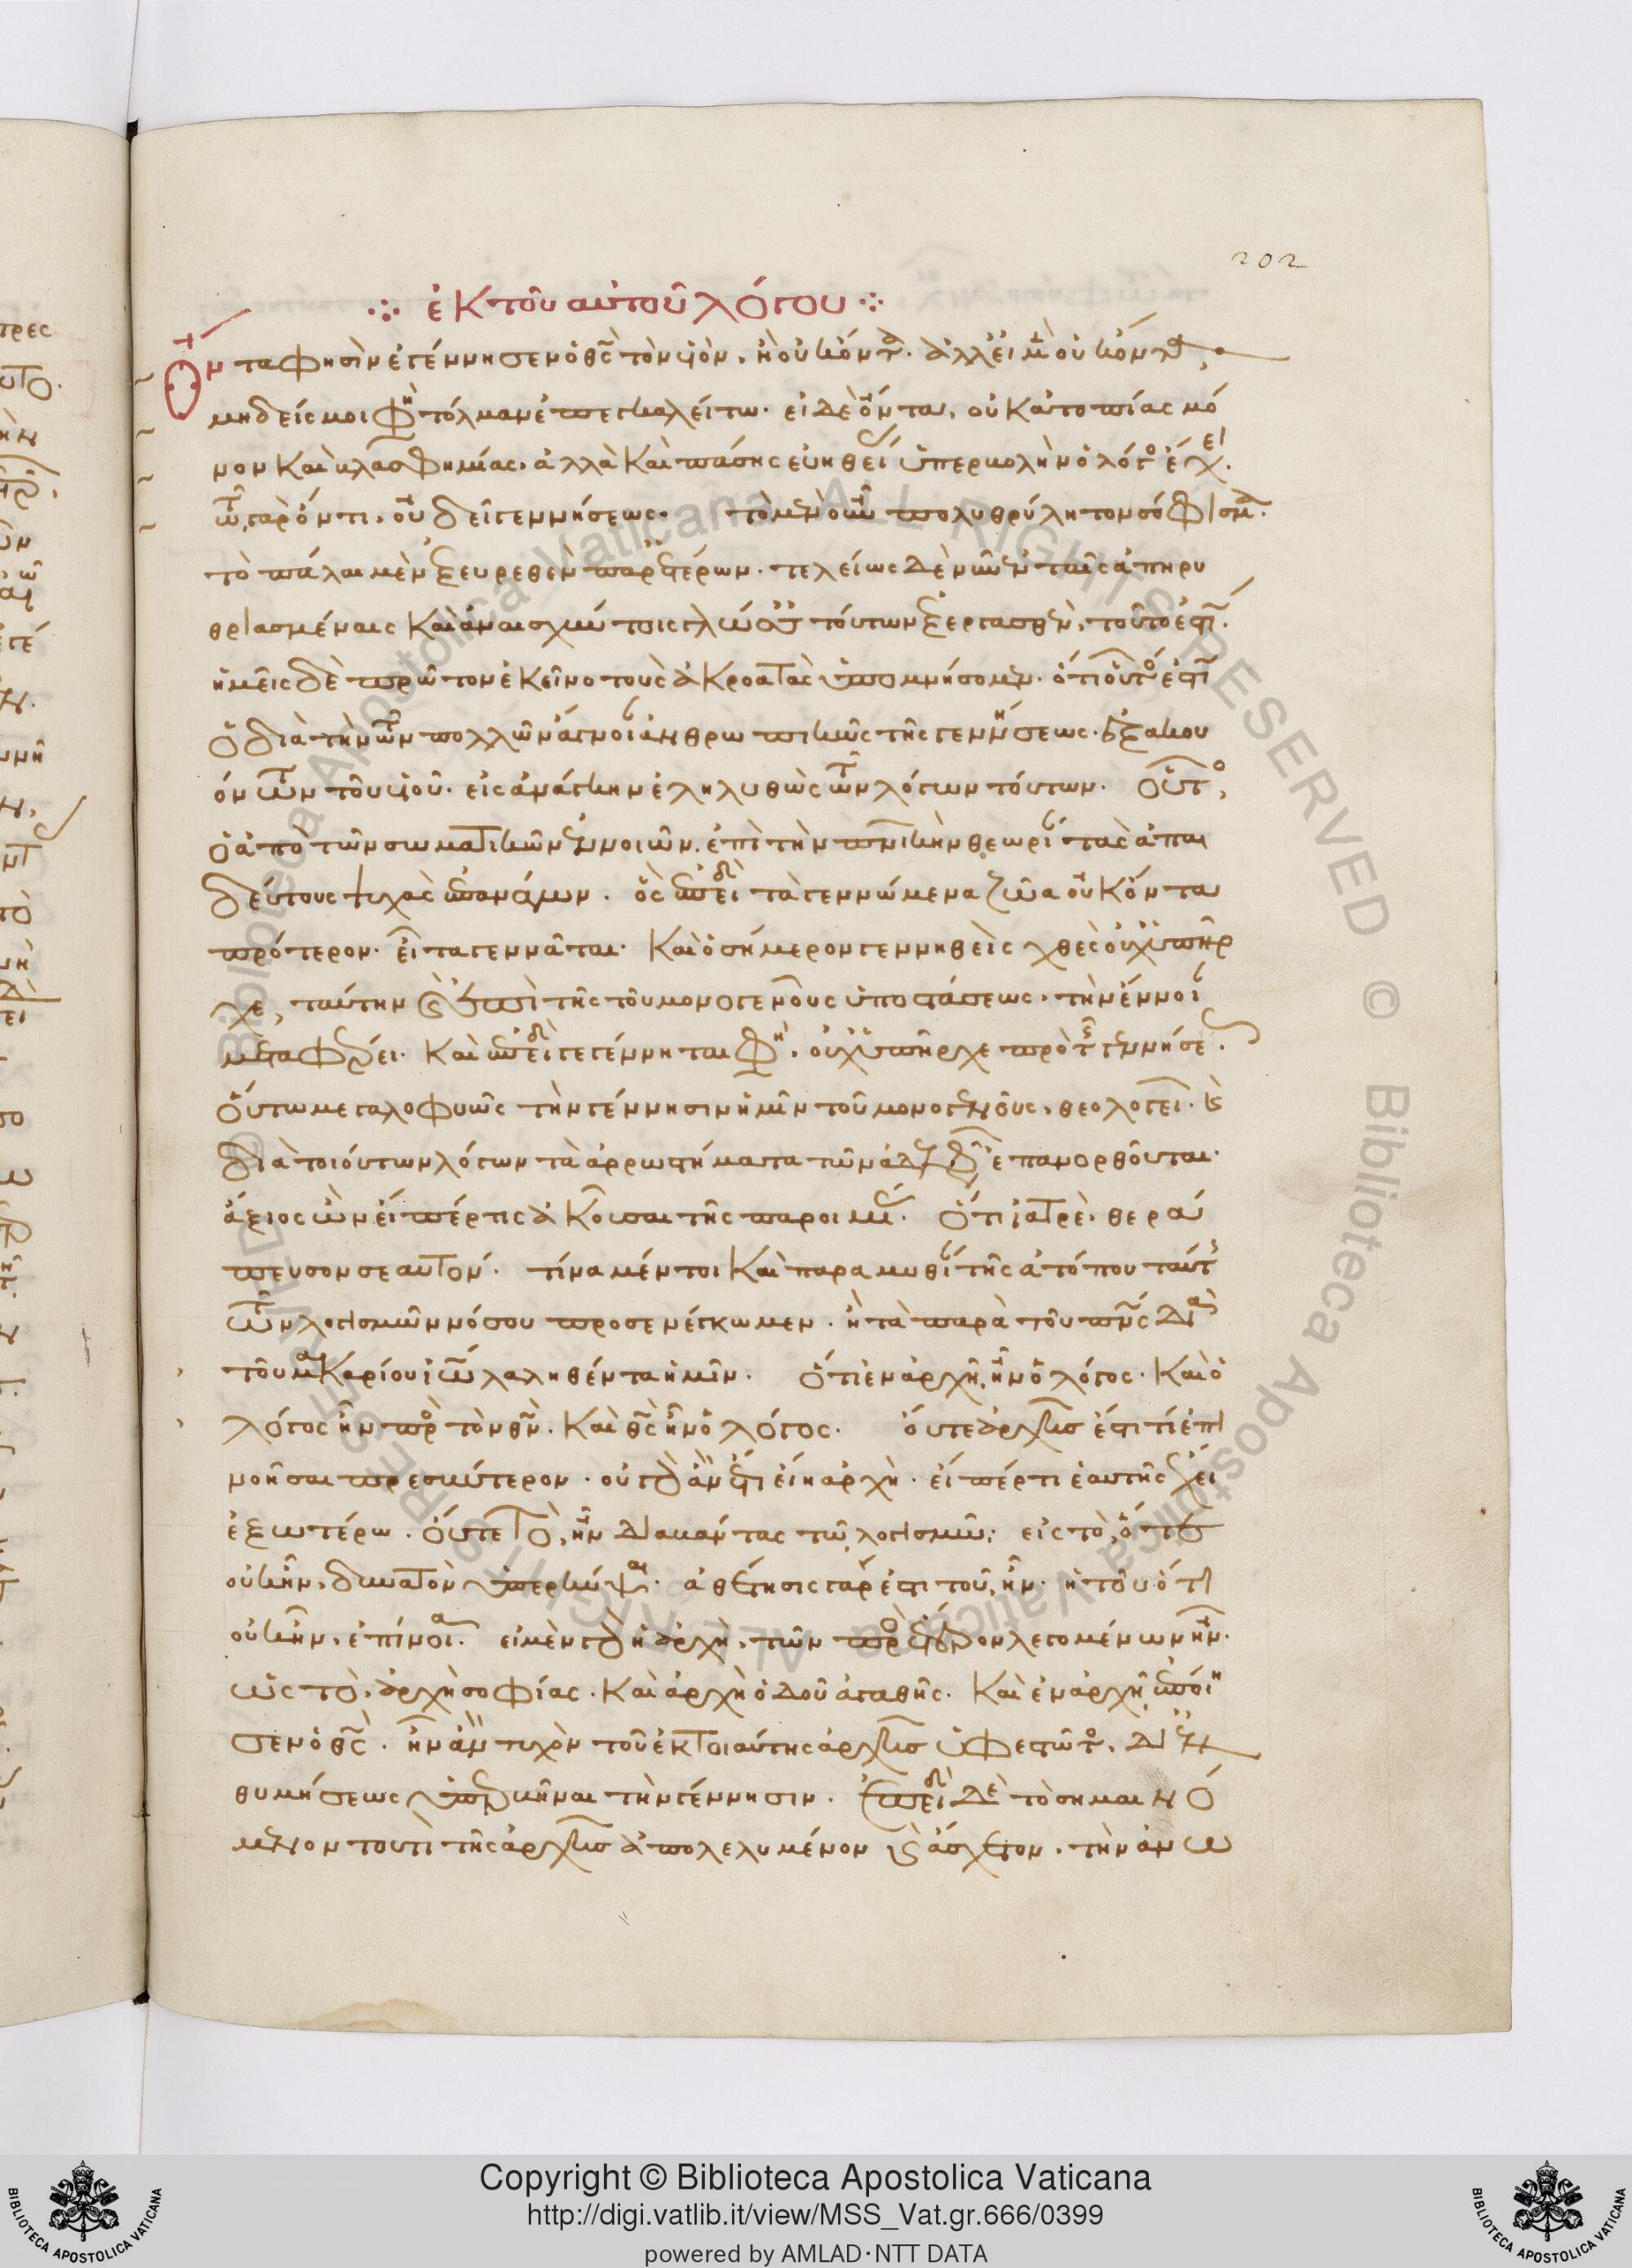 202
ἐκ τοῦ αὐτοῦ λόγου
Ὄντα φησὶν ἐγέννησεν ὁ θς τὸν υἱὸν, ἢ οὐκ ὄντα. ἀλλ' εἰ μὲν οὐκ ὄντα,
μηδείς μοι φη τόλμαν ἐπεγκαλείτω. εἰ δὲ ὄντα, οὐκ ἀτοπίας μό
νον καὶ βλασφημίας, ἀλλὰ καὶ πάσης εὐηθείας ὑπερβολὴν ὁ λόγος ἔχει.
τῶ γὰρ ὄντι, οὐ δεῖ γεννήσεως. τὸ μὲν οὖν πολυθρύλητον σόφισμα.
τὸ πάλαι μὲν ἐξευρεθὲν παρ' ἑτέρων. τελείως δὲ νῦν ἐν ταῖς ἀπηρυ
θριασμέναις καὶ ἀναισχύντοις γλώσσαις τούτων ἐξεργασθὲν, τοῦτό ἐστι.
ἡμεῖς δὲ πρῶτον ἐκεῖνο τοὺς ἀκροατὰς ὑπομνήσομεν. ὅτι οὗτός ἐστιν
ὁ διὰ τὴν τῶν πολλῶν ἄγνοιαν ἀνθρωπικῶς τῆς γεννήσεως ἐξακου
όντων τοῦ υἱοῦ. εἰς ἀνάγκην ἐληλυθὼς τῶν λόγων τούτων. οὗτος,
ὁ ἀπὸ τῶν σωματικῶν ἐννοιῶν, ἐπὶ τὴν πνικὴν θεωρίαν τὰς ἀπαι
δεύτους ψυχὰς ἐπανάγων. ὃς ἐπειδὴ τὰ γεννώμενα ζῶα οὐκ ὄντα
πρότερον. εἶτα γεννᾶται. καὶ ὁ σήμερον γεννηθεὶς χθὲς οὐχ ὑπῆρ
χε, ταύτην καὶ ἐπὶ τῆς τοῦ μονογενοῦς ὑποστάσεως, τὴν ἔννοιαν
μεταφέρει. καὶ ἐπειδὴ γεγέννηται φη, οὐχ ὑπῆρχε πρὸ τῆς γεννήσεως.
οὕτω μεγαλοφυῶς τὴν γέννησιν ἡμῖν τοῦ μονογενοῦς, θεολογεῖ. καὶ
διὰ τοιούτων λόγων τὰ ἀρρωστήματα τῶν ἀδελφῶν ἐπανορθοῦται.
ἄξιος ὢν εἴπέρ τις ἀκοῦσαι τῆς παροιμίας. ὅτι ἰατρὲ, θερά
πευσον σεαυτόν. τίνα μέντοι καὶ παραμυθίαν τῆς ἀτόπου ταύτης
τῶν λογισμῶν νόσου προσενέγκωμεν. ἢ τὰ παρὰ τοῦ πνς διὰ
τοῦ μακαρίου ἰω λαληθέντα ἡμῖν. ὅτι ἐν ἀρχῆ, ἦν ὁ λόγος. καὶ ὁ
λόγος ἦν πρὸς τὸν θν. καὶ θς ἦν ὁ λόγος. οὔτε ἀρχῆς ἔστι τί ἐπι
νοῆσαι πρεσβύτερον. οὐ γὰρ ἂν ἔτι εἴη ἀρχὴ. εἴ πέρ τι ἑαυτῆς ἔχει
ἐξωτέρω. οὔτε τὸ, ἦν διαβάντας τῶ λογισμῶ, εἰς τὸ, ὅτε
οὐκ ἦν, δυνατὸν ὑπερκύψαι. ἀθέτησις γάρ ἐστι τοῦ, ἦν. ἡ τοῦ ὅτι
οὐκ ἦν, ἐπίνοια. εἰ μὲν γὰρ ἡ ἀρχὴ, τῶν πρὸς ἕτερον λεγομένων ἦν.
ὡς τὸ, ἀρχὴ σοφίας. καὶ ἀρχὴ ὁδοῦ ἀγαθῆς. καὶ ἐν ἀρχῆ ἐποίη
σεν ὁ θς. ἦν ἂν τυχὸν τοῦ ἐκ τοιαύτης ἀρχῆς ὑφεστῶτος, δι' ἐν
θυμήσεως ὑπερβῆναι τὴν γέννησιν. ἐπειδὴ δὲ τὸ σημαινό
μενον τουτὶ τῆς ἀρχῆς ἀπολελυμένον καὶ ἄσχετον, τὴν ἀνω
Copyright © Biblioteca Apostolica Vaticana
http://digi.vatlib.it/view/MSS_Vat.gr.666/0399
powered by AMLAD·NTT DATA